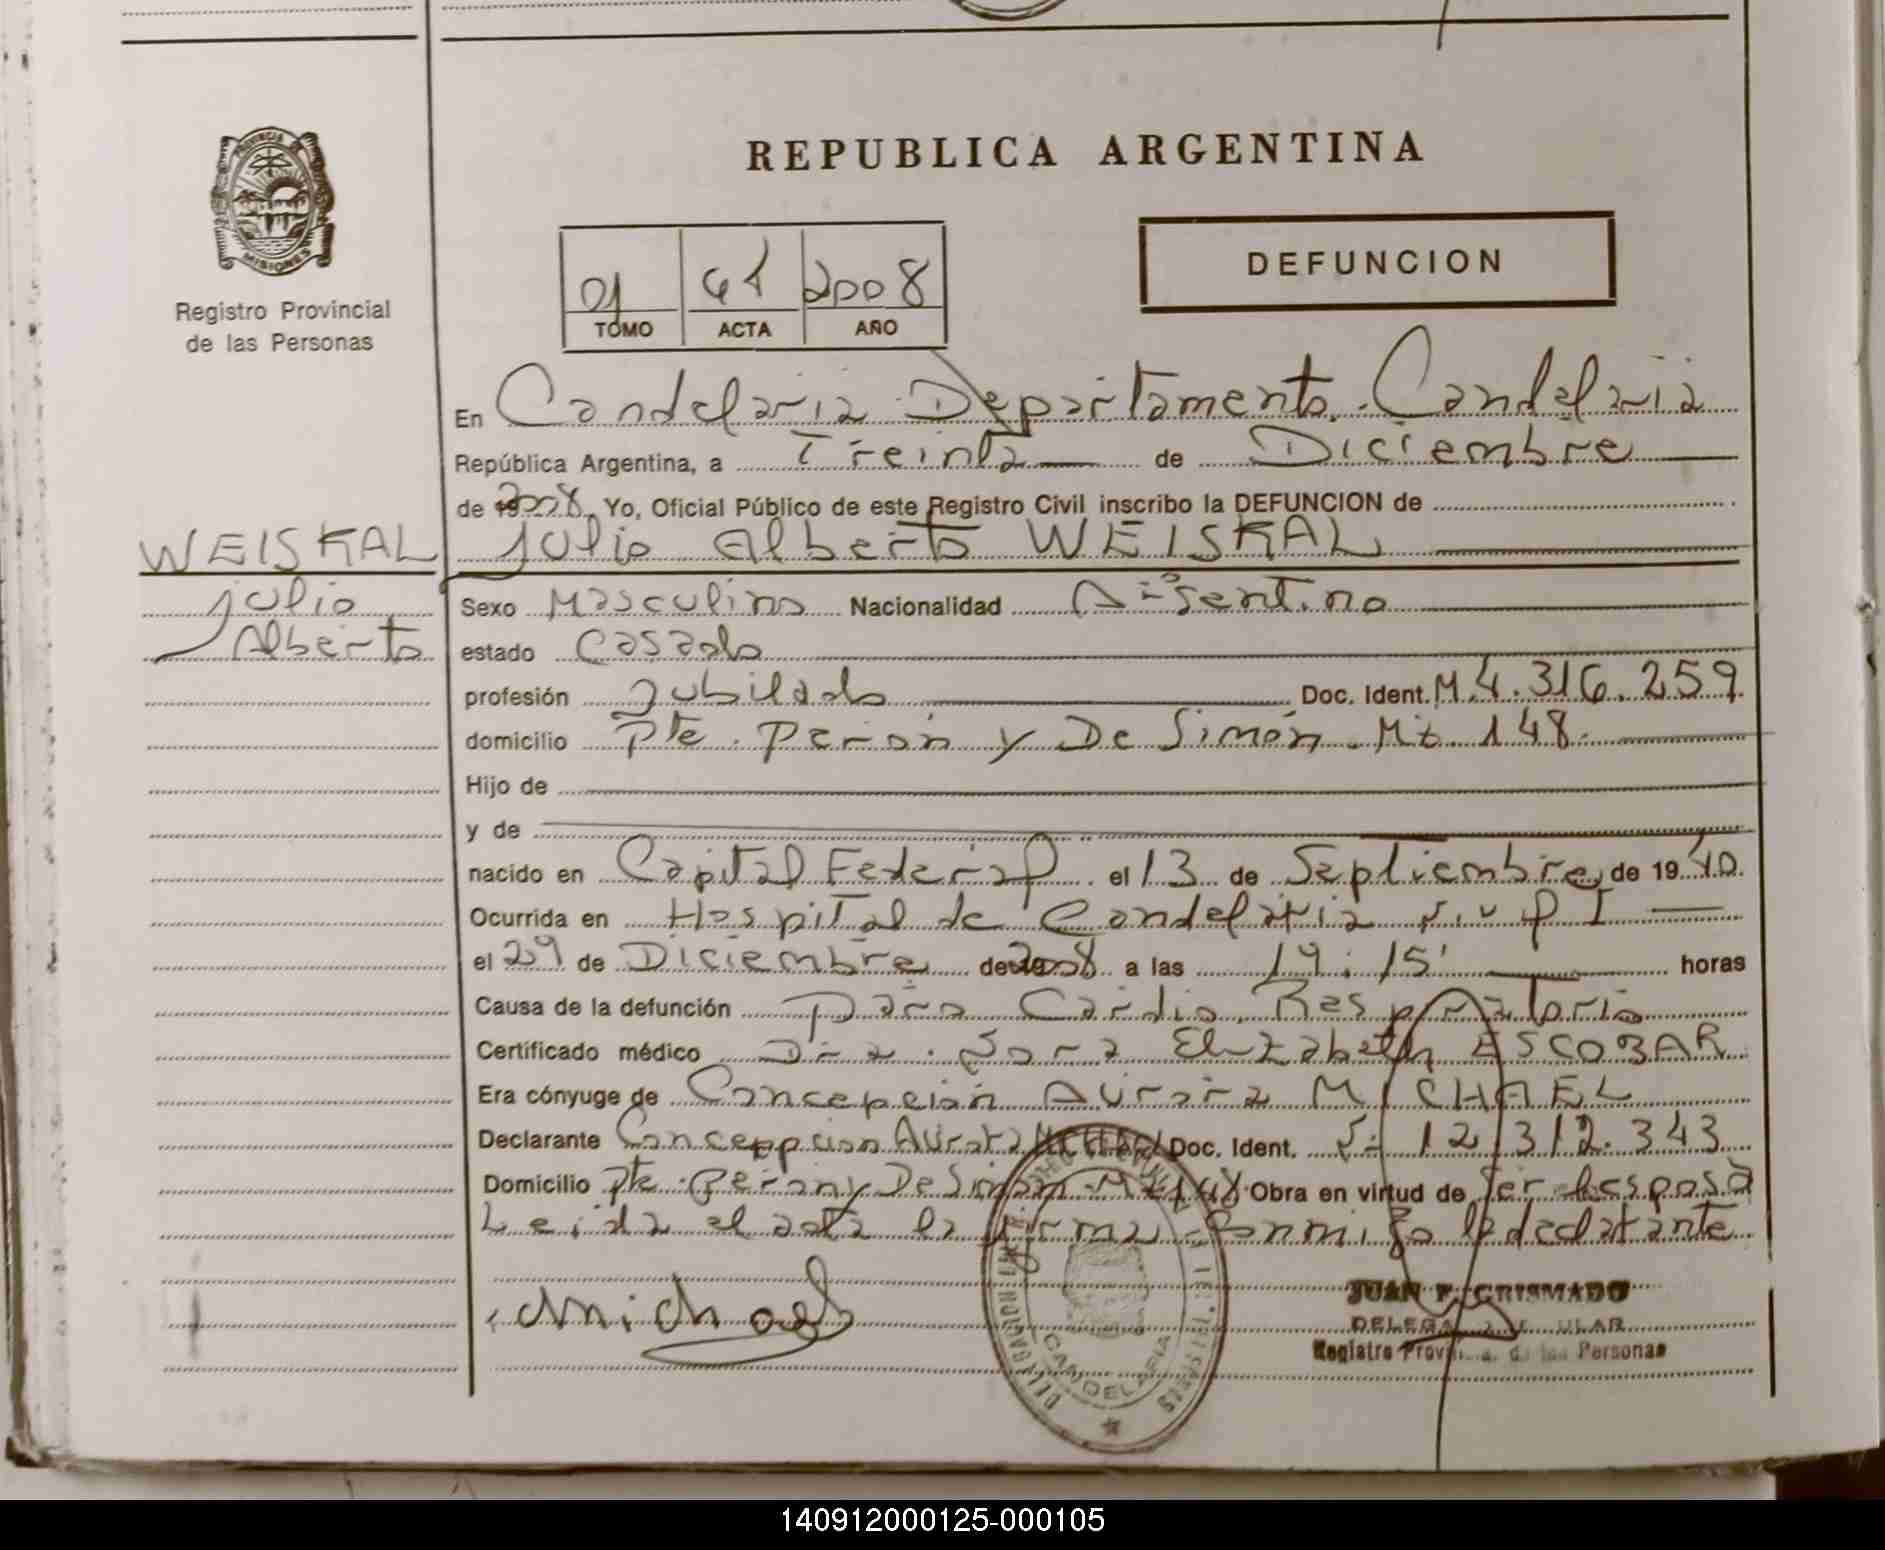 PROVINCIA DE
MISIONES
Registro Provincial
de las Personas
REPUBLICA ARGENTINA
01 41 2008
TOMO ACTA AÑO
DEFUNCION
En Candelaria Departamento Candelaria
República Argentina, a Treinta de Diciembre
de 2008 Yo, Oficial Público de este Registro Civil inscribo la DEFUNCION de
WEISKAL Julio Alberto WEISKAL
Julio Sexo Masculino Nacionalidad Argentino
Alberto estado Casado
profesión Jubilado Doc. Ident. M.4.316.259
domicilio Pte. Perón y De Simón. Mz. 148.
Hijo de
y de
nacido en Capital Federal el 13 de Septiembre de 1940
Ocurrida en Hospital de Candelaria
el 29 de Diciembre de 2008 a las 19:15' horas
Causa de la defunción Paro Cardio Respiratorio
Certificado médico Dra. Sara Elizabeth ESCOBAR
Era cónyuge de Concepción Aurora MICHAEL
Declarante Concepcion Aurora Michael Doc. Ident. 12.312.343
Domicilio Pte. Perón y De Simón. Mz 148 Obra en virtud de Ser Esposa
Leida el acta la firma Conmigo la declarante
Michael
JUAN F. GRISMADO
Registro Provincial de las Personas
DELEGACION
CANDELARIA
140912000125-000105